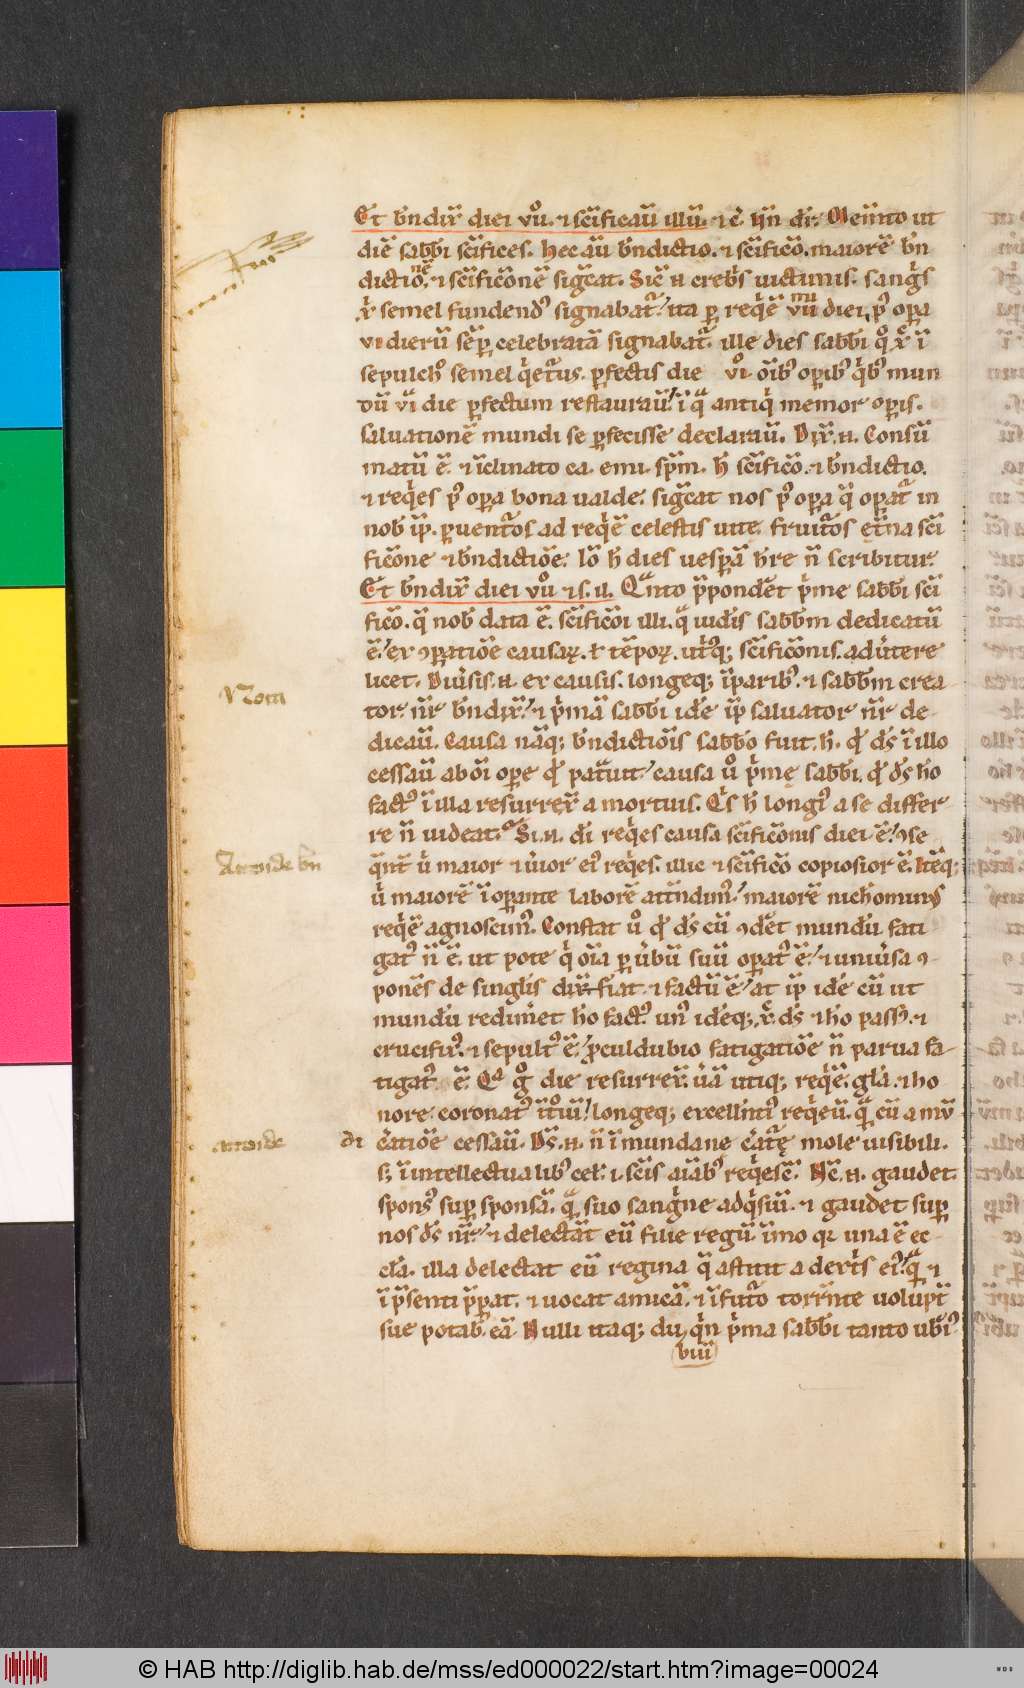 Et bn̄dix̄ diei vıı̊. ⁊ scīficaū illū. ⁊ c̄. ı̄jn̄ dr̄. Mem̄to ut
diē sabb̄i scīfices. hec aū bn̄dictio. ⁊ scīficō. maiorē bn̄
dictionē. ⁊ scīficōnē sigc̄at. Sic̄ .n. crebs̄ uictimis. sangīs
xp̄i semel fundend᷒ signabat᷑. ita p̱ req̄ē vıı diei, p᷒ oꝑa
vı dierū sēꝑ celebratā signabat᷑. ille dies sabb̄i q̊ xp̄i ī
sepulch̊ semel q̄etur᷒. ꝑfectis die vı̊. oīb᷒ oꝑib᷒ q̄b᷒ mun
dū vı̄ die ꝑfectum restauraū. ī q̄ antiq̄ memor oꝑis.
saluationē mundi se ꝑfecisse declaraū. Dix̄ .n. Consū
matū ē. ⁊ īclinato ca. emi. spm̄. h̄ scīficō. ⁊ bn̄dictio.
⁊ req̄es p᷒ oꝑa bona ualde. sigc̄at nos p᷒ oꝑa q̄ oꝑat᷑ in
nob̄ ip̄. ꝑuent᷑os ad req̄ē celestis uite. fruit᷑os et̄na scī
ficōne ⁊ bn̄dictiōe. Iō h̄ dies uesꝑā h̄re n̄ scribitur.
Et bn̄dix̄ diei vıı̊ ⁊ s. ıı. Qn̄to p̄pondēt p̄me sabb̄i scī
ficō. q̄ nob̄ data ē. scīficōi illi. q̄ iudīs sabb̄m dedicatū
ē. ex ꝯꝑatiōe causaꝝ. ⁊ tēpoꝝ. ut̄q; scīficōnis. aduītere
licet. Diūsis .n. ex causis. longeq; īparib᷒. ⁊ sabb̄m crea
tor nr̄ bn̄dix̄. ⁊ p̄mā sabb̄i idē ip̄ saluator nr̄ de
dicaū. Causa nāq; bn̄dictiōis sabb̄o fuit. h̄. qđ ds̄ ī illo
cessaū ab oī oꝑe qđ pat̄uit. causa ů p̄me sabb̄i. qđ ds̄ ho
fact᷒ ī illa resurrex̄ a mortuis. Q̄s h̄ long᷒ a se differ
re n̄ uideat᷑. Si .n. dī req̄es causa scīficōnis diei ē. ꝯse
q̄nt̄ ů maior ⁊ uīor ei᷒ req̄es. illic ⁊ scīficō copiosior ē. Itēq;
ů maiorē ī oꝑante laborē attn̄dim᷒. maiorē nichominus
req̄ē agnoscim᷒. Constat ů qđ ds̄ cū ꝯdēt mundū fati
gat᷒ n̄ ē. ut pote q̄ oīa ꝑ ūbū suū oꝑat᷒ ē. ⁊ uniūsa ꝯ
ponēs de singlīs dix̄ fiat ⁊ factū ē. at ip̄ idē cū ut
mundū redim̄et ho fact᷒ un᷒ idēq; xp̄i. ds̄ ⁊ ho pass᷒. ⁊
crucifix᷒. ⁊ sepult᷒ ē. ꝓculdubio fatigatiōe n̄ parua fa
tigat᷒ ē. Qᵃ g̊ die resurrex̄. uā utiq; req̄ē. glā. ⁊ ho
nore coronat᷒ ītroiū. longeq; excellīti᷒ req̄eū. q̄ cū a mū
di c̄atiōe cessaū. Ds̄ .n. n̄ ī mundane c̄at᷑e mole uisibili.
s; ī intellectualib᷒ cel̄. ı. scīs aīab᷒ req̄escē. Nc̄ .n. gaudet
spons᷒ suꝑ sponsā. q̄ suo sangīne adq̄siū. ⁊ gaudet suꝑ
nos ds̄ nr̄. ⁊ delectāt eū filie regū. imo qꝛ una ē ec
clīa. illa delectat eū regina q̄ astitit a dextīs ei᷒. q̄ ⁊
ī p̄senti p̄ꝑat. ⁊ uocat amicā. ⁊ ī fut᷑o torr̄nte uolupt̄
sue potab̄ eā Nulli itaq; du, q̄n p̄ma sabb̄i tanto ub̄i᷒
vııı
Nota
Attende bn̄
attende
© HAB http://diglib.hab.de/mss/ed000022/start.htm?image=00024